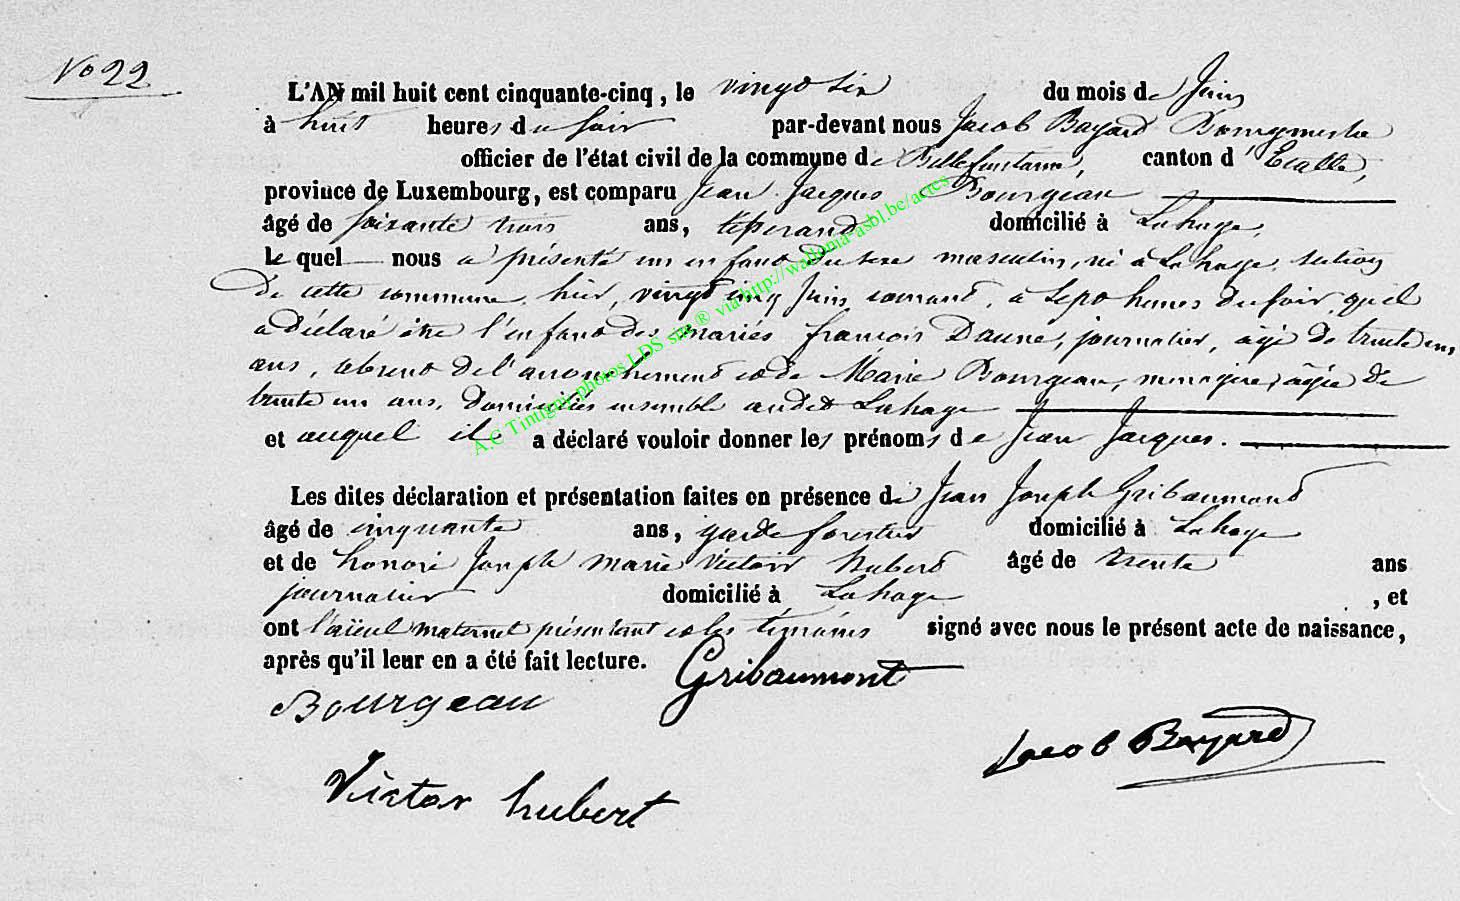 No 22
L'AN mil huit cent cinquante-cinq, le vingt six du mois de Juin
à huit heures du soir par-devant nous Jacob Bayard Bourgmestre
officier de l'état civil de la commune de Bellefontaine, canton d'Etalle,
province de Luxembourg, est comparu Jean Jacques Bourgeau
âgé de soixante trois ans, tisserand domicilié à Lahage,
lequel nous a présenté un enfant du sexe masculin, né à Lahage, section
de cette commune, hier, vingt cinq Juin courant, à sept heures du soir, qu'il
a déclaré être l'enfant des mariés françois Daune, journalier, âgé de trente un
ans, absent de l'accouchement et de Marie Bourgeau, menagère, âgée de
trente un ans, domiciliés ensemble audit Lahage
et auquel il a déclaré vouloir donner les prénoms de Jean Jacques.
Les dites déclaration et présentation faites en présence de Jean Joseph Gribaumont
âgé de cinquante ans, garde forestier domicilié à Lahage
et de honoré Joseph marie Victoir hubert âgé de trente ans
journalier domicilié à Lahage, et
ont l'aïeul maternel présentant et les témoins signé avec nous le présent acte de naissance,
après qu'il leur en a été fait lecture.
Gribaumont
Bourgeau
Jacob Bayard
Victor hubert
A.C Tintigny photos LDS site ® via http://wallonia-asbl.be/actes